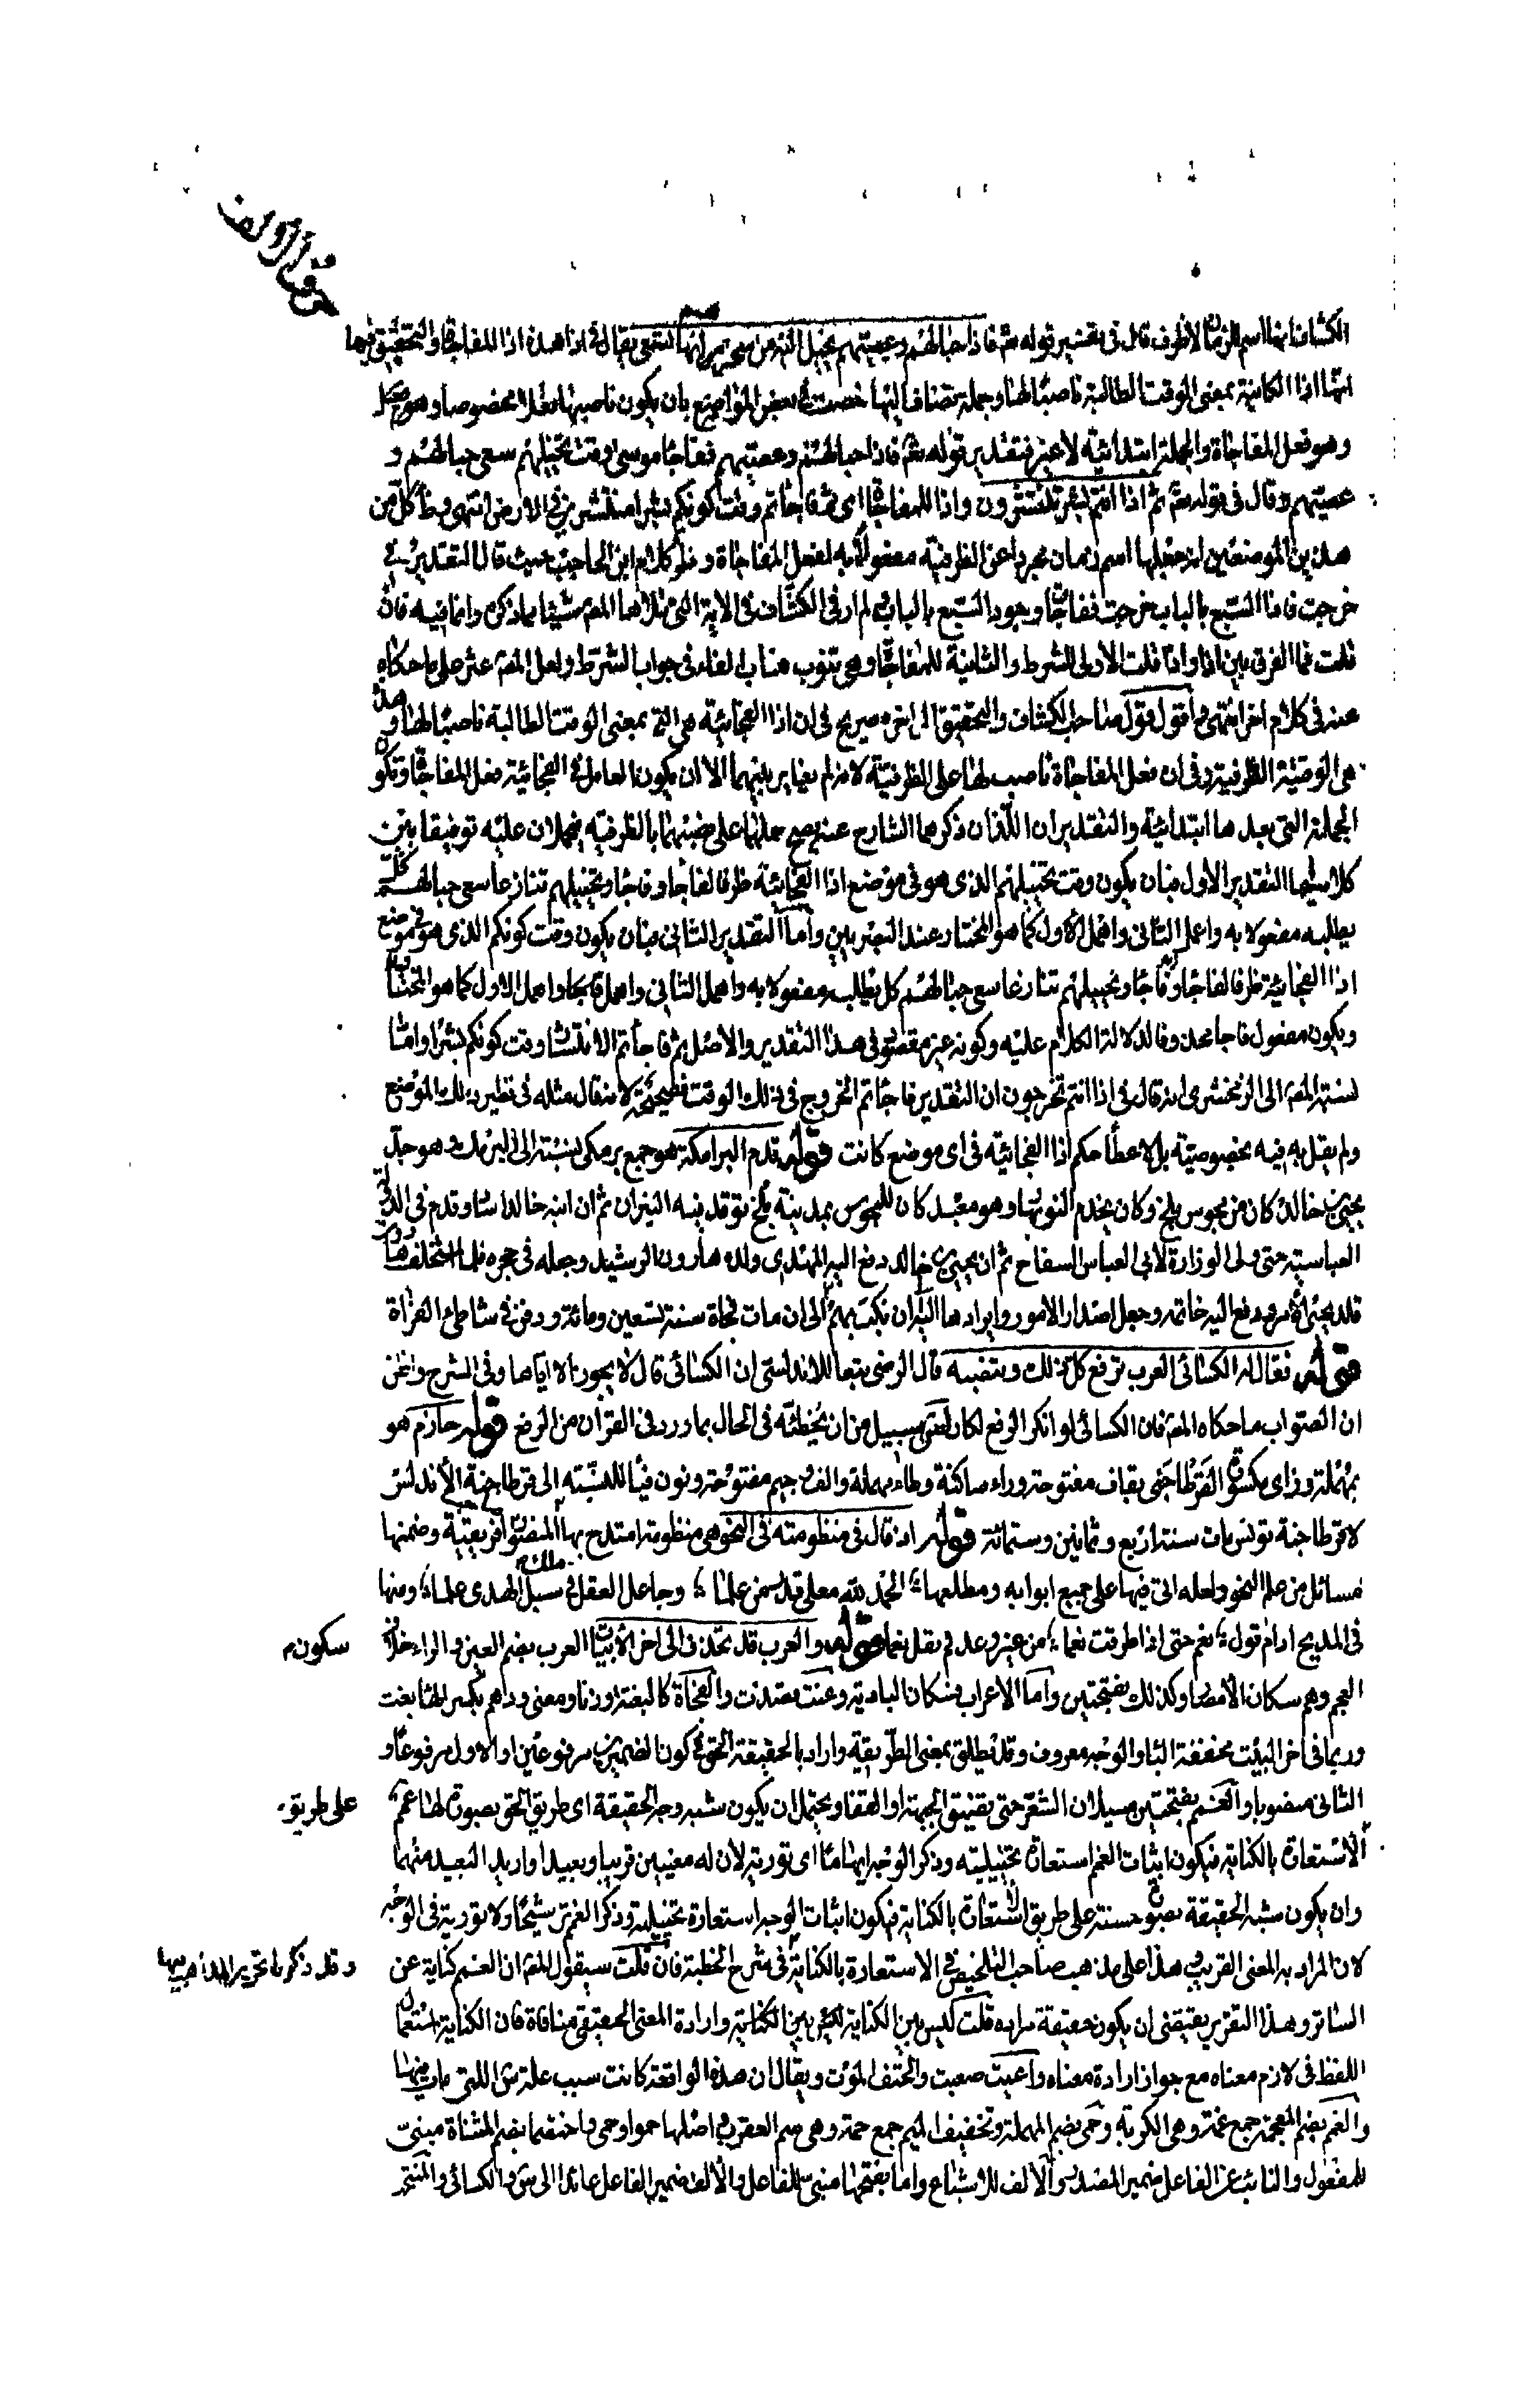 الكشاف انها اسم الزمان لا ظرف قال في تفسير قوله تعم فاذا حبالهم وعصيتهم يخيل اليه من سحرهم انها تسعى يقال في اذا هذه اذا المفاجاة والتحقيق فيها
انها اذا الكائنة بمعنى الوقت الطالبة ناصبًا لها وجملة تضاف اليها خصت في بعض المواضع بان يكون ناصبها فعلا مخصوصا وهو
وهو فعل المفاجاة والجملة ابتدائية لا غير فتقدير قوله تعم فاذا حبالهم وعصيهم ففاجأ موسى وقت تخييلهم سعى حبالهم و
عصيتهم وقال في قوله تعم ثم اذا انتم بشر تنتشرون واذا للمفاجاة اى ثم فاجأتم وقت كونكم بشرا منتشرين في الارض انتهى فظ كل من
هذين الموضعين انه جعلها اسم زمان مجردا عن الظرفية مفعولا به لفعل المفاجاة وظ كلام ابن الحاجب حيث قال التقدير في
خرجت فاذا السبع بالباب خرجت ففاجأ وجود السبع بالباب ولم ار في الكشاف في الاية التى تلاها المص شيئا مما ذكره وانما فيه فان
قلت فما الفرق بين اذا واذا قلت الاولى للشرط والثانية للمفاجأة وهى تنوب مناب الفاء في جواب الشرط ولعل المص عثر على ما حكاه
عنه في كلام اخر انتهى واقول قول صاحب الكشاف والتحقيق الى اخره صريح في ان اذا الفجائية هى التى بمعنى الوقت الطالبة ناصبًا لها وهذه
هى الوقتية الظرفية وفى ان فعل المفاجاة ناصب لها على الظرفية لانه لم يغاير بينهما الا ان يكون العامل في الفجائية فعل المفاجأة وتكون
الجملة التى بعدها ابتدائية والتقديران اللذان ذكرهما الشارح عنه يصح حملهما على نصبهما بالظرفية فيحملان عليه توفيقا بين
كلاميه اما التقدير الاول فبان يكون وقت تخييلهم الذى هو في موضع اذا الفجائية ظرفا لفاجأ وفاجأ وتخييلهم تنازعا سعى حبالهم كل
يطلبه مفعولا به واعمل الثانى واهمل الاول كما هو المختار عند البصريين واما التقدير الثانى فبان يكون وقت كونكم الذى هو في موضع
اذا الفجائية ظرفا لفاجأ وفاجأ وتخييلهم تنازعا سعى حبالهم كل يطلبه مفعولا به واعمل الثانى واهمل الاول كما هو المختار
ويكون مفعول فاجأ محذوفا لدلالة الكلام عليه وكونه غير مقصود في هذا التقدير والاصل ثم فاجأتم الانتشار وقت كونكم بشرا واما
نسبة المص الى الزمخشرى انه قال في اذا انتم تخرجون ان التقدير فاجأتم الخروج في ذلك الوقت فصحيحة لانه قال مثله في نظير ذلك الموضع
ولم يقل به فيه بخصوصيّة بل لاعطاء حكم اذا الفجائية في اى موضع كانت قوله قدم البرامكة هو جمع برمكى نسبته الى البرمك وهو جد
يحيى بن خالد كان من مجوس بلخ وكان يخدم النوبهار وهو معبد كان للمجوس بمدينة بلخ توقد فيه النيران ثم ان ابنه خالدا ساد وقدم في الدولة
العباسية حتى ولى الوزارة لابى العباس السفاح ثم ان يحيى بن خالد دفع اليه المهدى ولده هارون الرشيد وجعله في حجره فلما استخلف هارون
قلد يحيى الامر ودفع اليه خاتمه وجعل اصدار الامور وايرادها اليه الى ان نكبت بهم الى ان مات فجأة سنة تسعين ومائة ودفن في شاطئ الفراة
قوله فقال له الكسائى العرب ترفع كل ذلك وتنصبه قال الرضى تبعا للاندلسى ان الكسائى قال لا يجوز الا اياها وفى الشرح واظن
ان الصواب ما حكاه المص فان الكسائى لو انكر الرفع لكان لقى سبيل من ان يخطئه في الحال بما ورد في القرآن من الرفع قوله حازم هو
بمهملة وزاى مكسورة القرطاجنى بقاف مفتوحة وراء ساكنة وطاء مهملة والف وجيم مفتوحة ونون فيا للنسبة الى قرطاجنة الاندلس
لا قرطاجنة تونس مات سنة اربع وثمانين وستمائة قوله اذ قال في منظومته في النحو هى منظومة امتدح بها المنصور ملك افريقية وضمنها
مسائل من علم النحو ولعله اتى فيها على جميع ابوابه ومطلعها ؛ الحمد لله معلى قدر من علما ؛ وجاعل العقل في سبل الهدى علما ؛ ومنها
في المديح ادام قول ؛ نعم حتى اذا طرقت نعماء ؛ من غير وعد لم يقل نعما قوله والعرب قد تحذف الى اخر الابيات العرب بضم العين والراء خلاف
سكون م
العجم وهم سكان الامصار وكذلك بفتحتين واما الاعراب فسكان البادية وعنت قصدت والفجأة كالبغتة وزنا ومعنى ودهم بكسر الهاء بغت
وربما في اخر البيت مخففة الباء والوجه معروف وقد يطلق بمعنى الطريقة واراد بالحقيقة الحق في كون الضميرين مرفوعين او الاول مرفوعا و
الثانى منصوبا والغم بفتحتين مسيلان الشعر حتى يضيق الجبهة او القفا ويحتمل ان يكون شبه وجه الحقيقة اى طريق الحق بصورة لها غم
على طريق
الاستعارة بالكناية فيكون اثبات الغم استعارة تخييلية وذكر الوجه ايهاما اى تورية لان له معنيين قريبا وبعيدا واريد البعيد منهما
وان يكون شبه الحقيقة بصورة حسنة على طريق الاستعارة بالكناية فيكون اثبات الوجه استعارة تخييلية وذكر الغم ترشيحًا ولا تورية في الوجه
لان المراد به المعنى القريب هذا على مذهب صاحب التلخيص في الاستعارة بالكناية في شرح الخطبة فان قلت سيقول المص ان الغم كناية عن
وقد ذكرنا تحرير المذاهب فيها
الساتر وهذا التقرير يقتضى ان يكون حقيقة مراده قلت ليس بين الكناية وارادة المعنى الحقيقى منافاة فان الكناية استعمال
اللفظ في لازم معناه مع جواز ارادة معناه واعيت صعبت والحتف الموت ويقال ان هذه الواقعة كانت سبب علة س اللتى مات فيها
والغم بضم المعجمة جمع غمة وهى الكربة وحمى بضم المهملة وتخفيف الميم جمع حمة وهى سم العقرب اصلها حمو او حمى
للمفعول والنائب عن الفاعل ضمير المصدر والالف للاشباع واما بفتحها مبنى للفاعل والالف ضمير الفاعل عائد الى س والكسائى